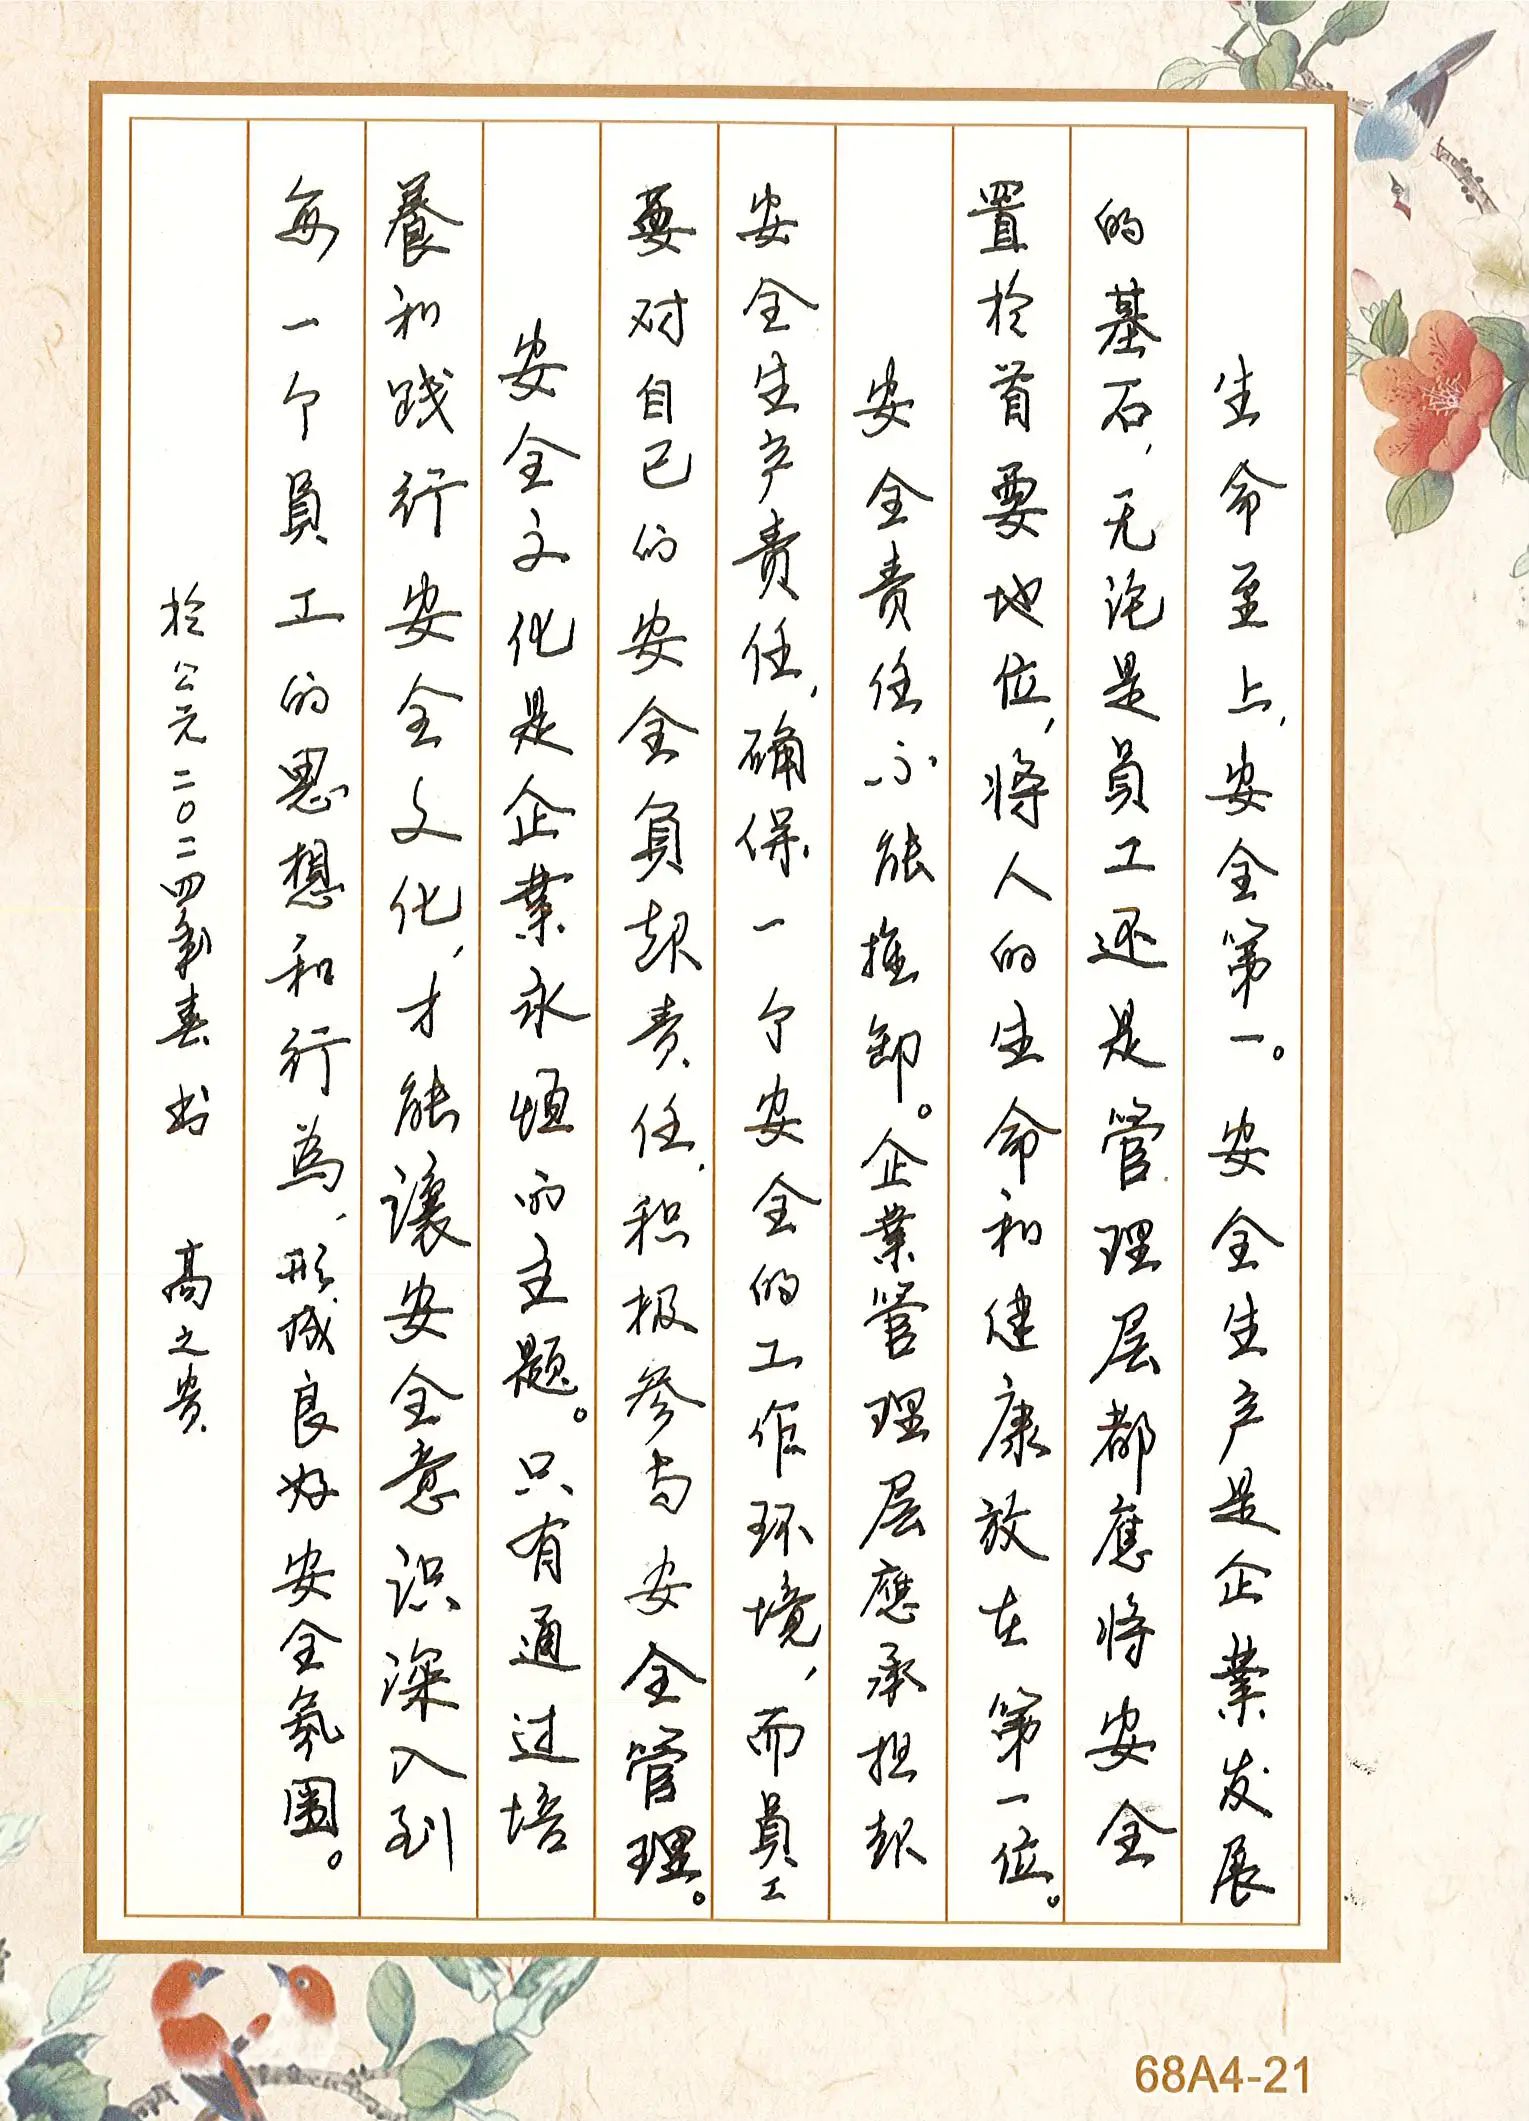 生命至上,安全第一。安全生产是企業发展
的基石,无论是員工还是管理层都應将安全
置於首要地位,将人的生命和健康放在第一位。
安全责任不能推卸。企業管理层應承担起
安全生产责任,确保一个安全的工作环境,而員工
要对自己的安全負起责任,积极参与安全管理。
安全文化是企業永恒的主题。只有通过培
養和践行安全文化,才能讓安全意识深入到
每一个員工的思想和行為,形成良好安全氛圍。
於公元二〇二四年春书 高之贵
68A4-21